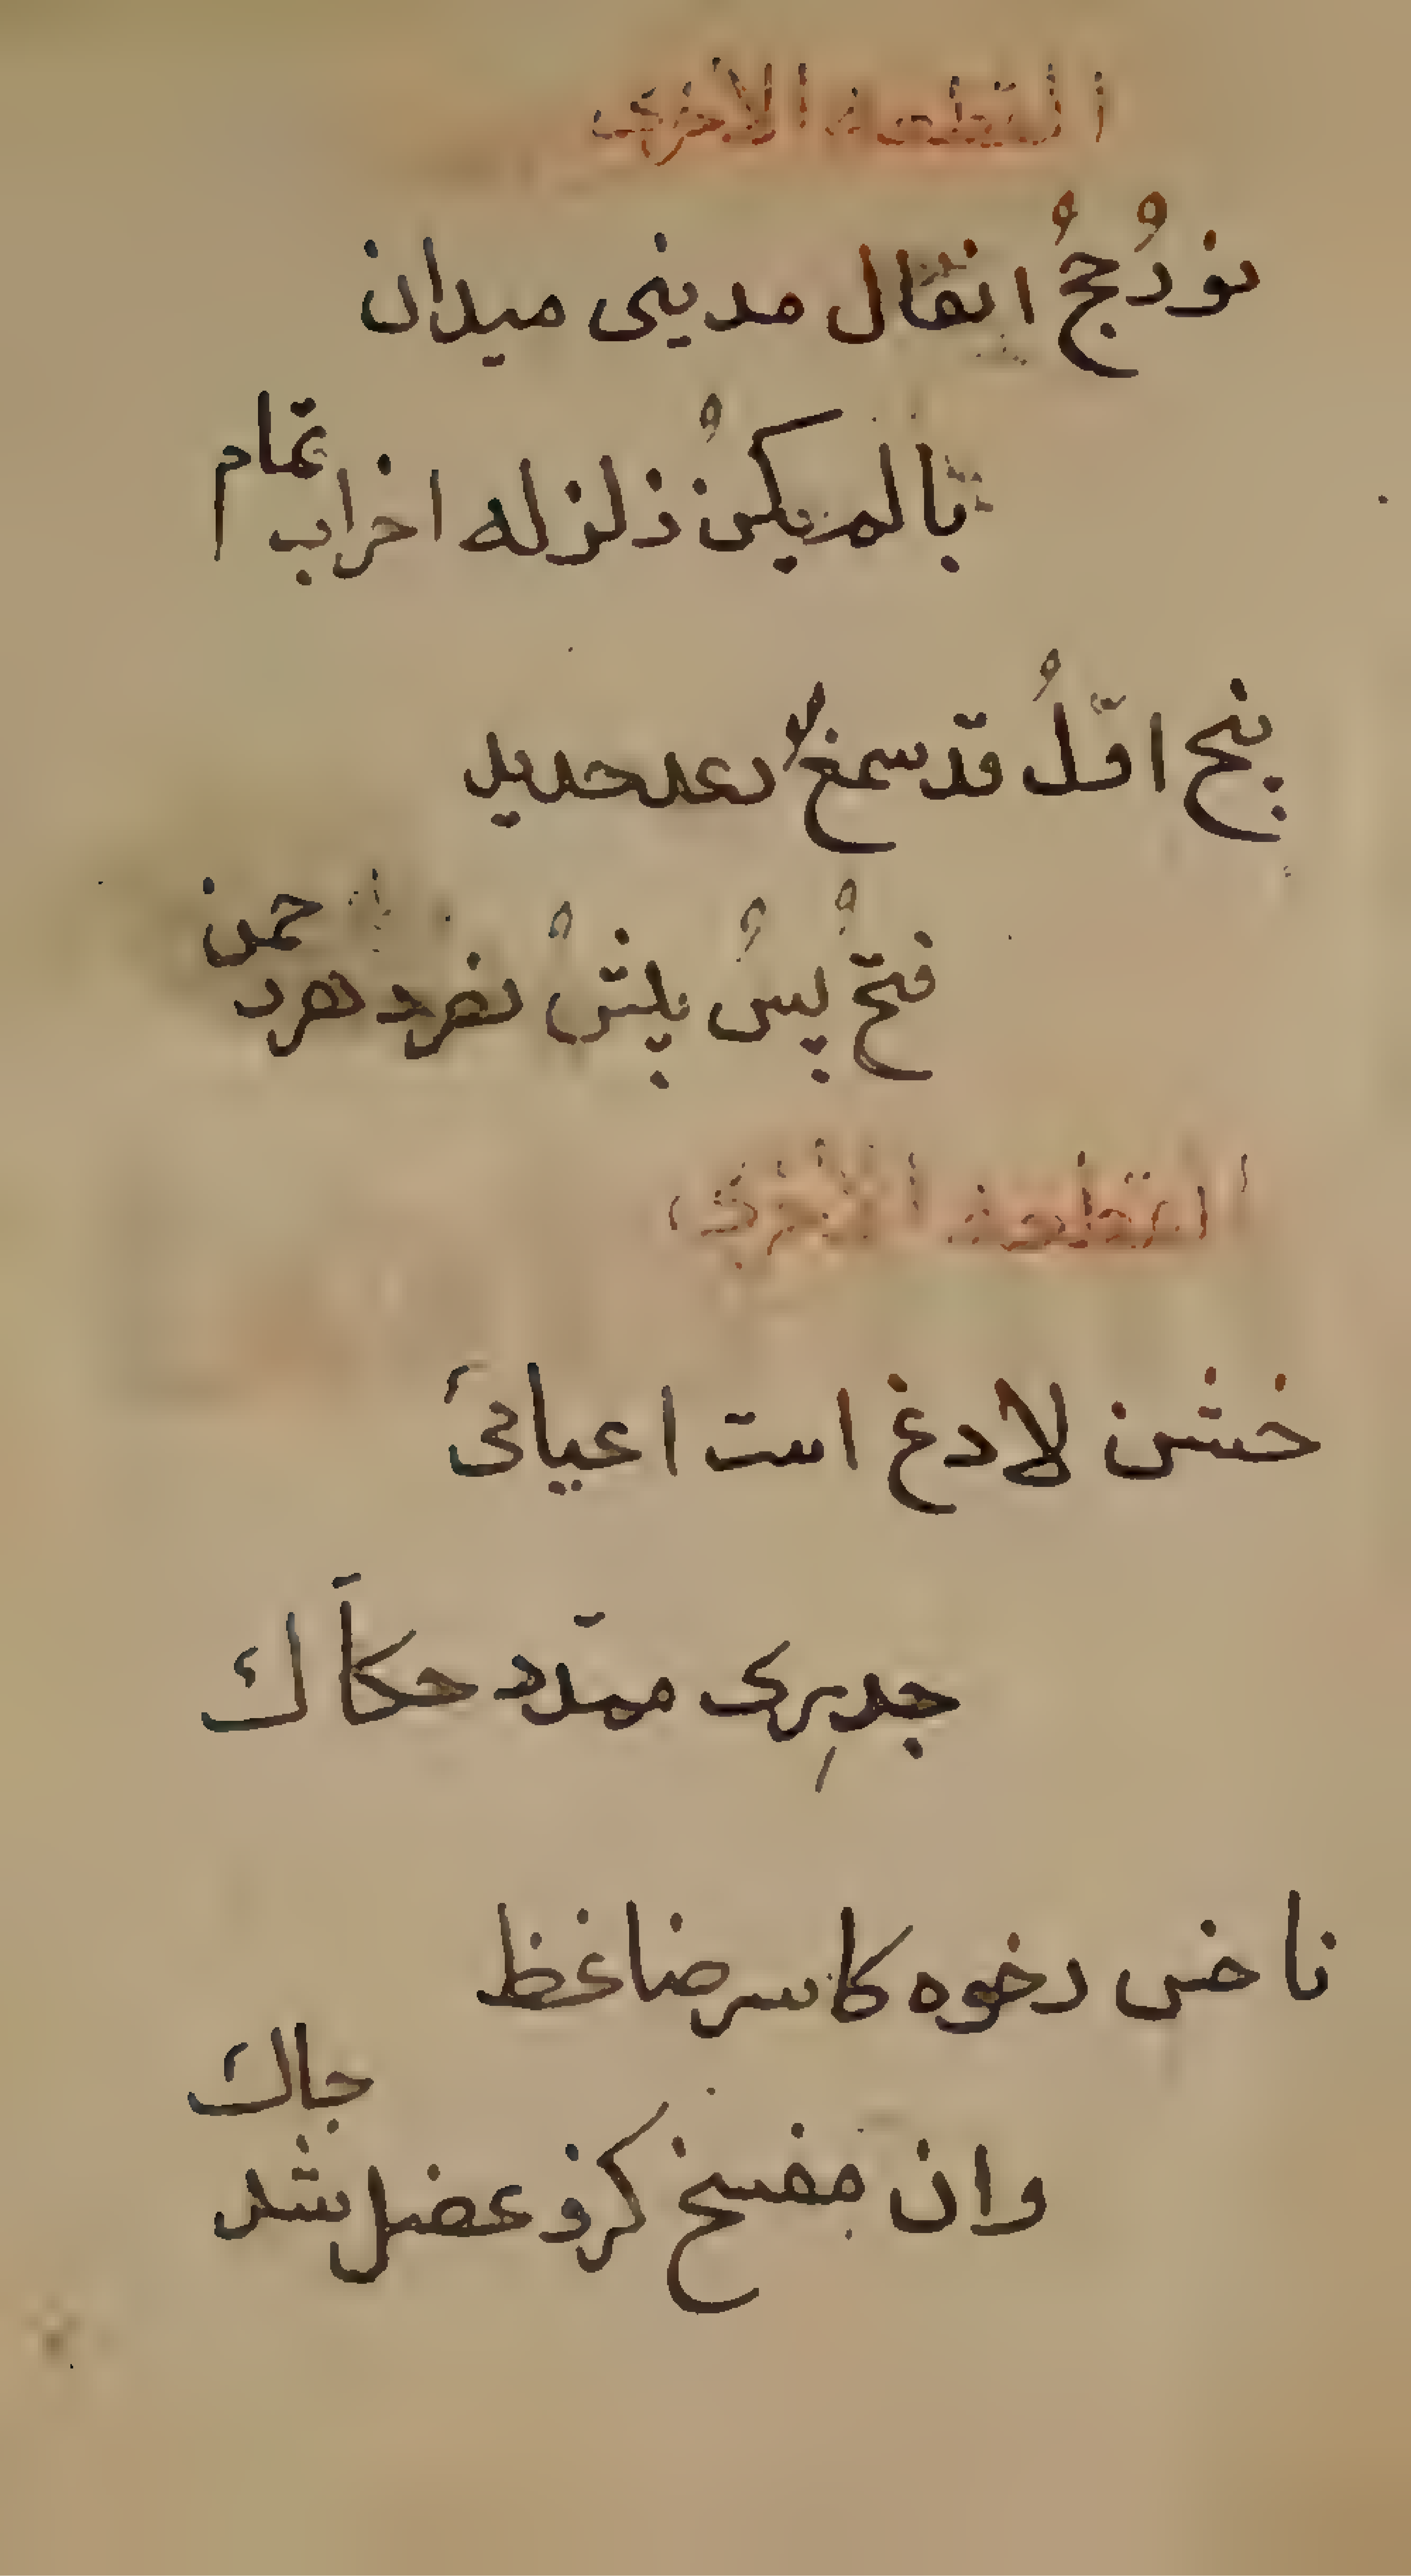 القطعه الاخرى
نودُجُ انقال مدینی میدان
بالم یکنُ ذلزله اخراب تمام
اقلُ قد سمغ لا دعد حدید
فتحُ پسُ پلتنُ نفرد هرد حمن
القطعه الاخرى
خشن لادغ است اعیائ
جدرِی ممدّد حکاَّك
ناخس دخوه کاسر ضاغظ
وان مفسخ کزو عضل شد جاك